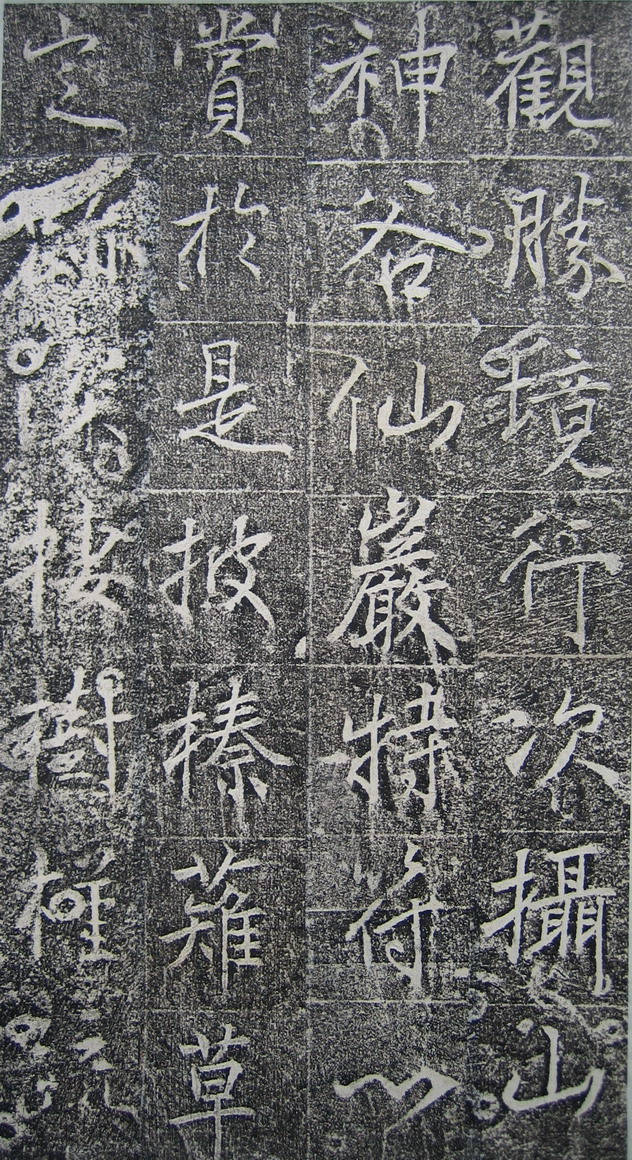 觀勝境行次攝山
神谷仙巖特符心
賞於是披榛薙草
定棲樹槿